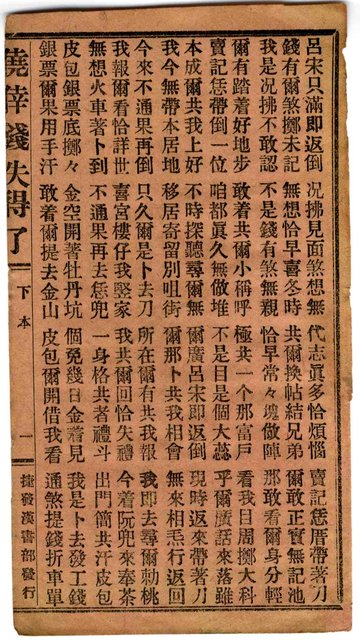 呂宋只滿即返倒 况拂見面煞想無 代志眞多恰煩惱 賣記恁厝帶著刀
錢有爾煞擲未記 無想恰早喜冬時 共爾換帖結兄弟 爾敢正實無記池
我是况拂不敢認 不是錢有煞無親 恰早常々塊做陣 那敢看爾身分輕
爾有踏着好地步 敢着共爾小稱呼 極共一个那富戶 看我目周擲大科
賣記恁帶倒一位 咱都眞久無做堆 不是目是個大蕊 乎爾廣話來落雖
本成爾共我上好 不時探聽尋爾無 爾廣呂宋即返倒 現時返來帶著刀
我今無帶本居地 移居寄留別咀街 爾那卜共我相會 無來相焏行返回
今來不通果再倒 只久爾是卜去刀 所在爾有共我報 我即去尋爾勅桃
我報爾看恰詳世 喜宮樓仔我竪家 我共爾回恰失禮 今着阮兜來奉茶
無想火車著卜到 不通果再去恁兜 一身格共者禮斗 出門簡共汗皮包
皮包銀票底擲々 金空開著牡丹坑 個免幾日金着見 我是卜去發工錢
銀票爾果用手汗 敢着爾提去金山 皮包爾開借我看 通煞提錢折車單
僥倖錢失得了 下本 一 捷發漢書部發行